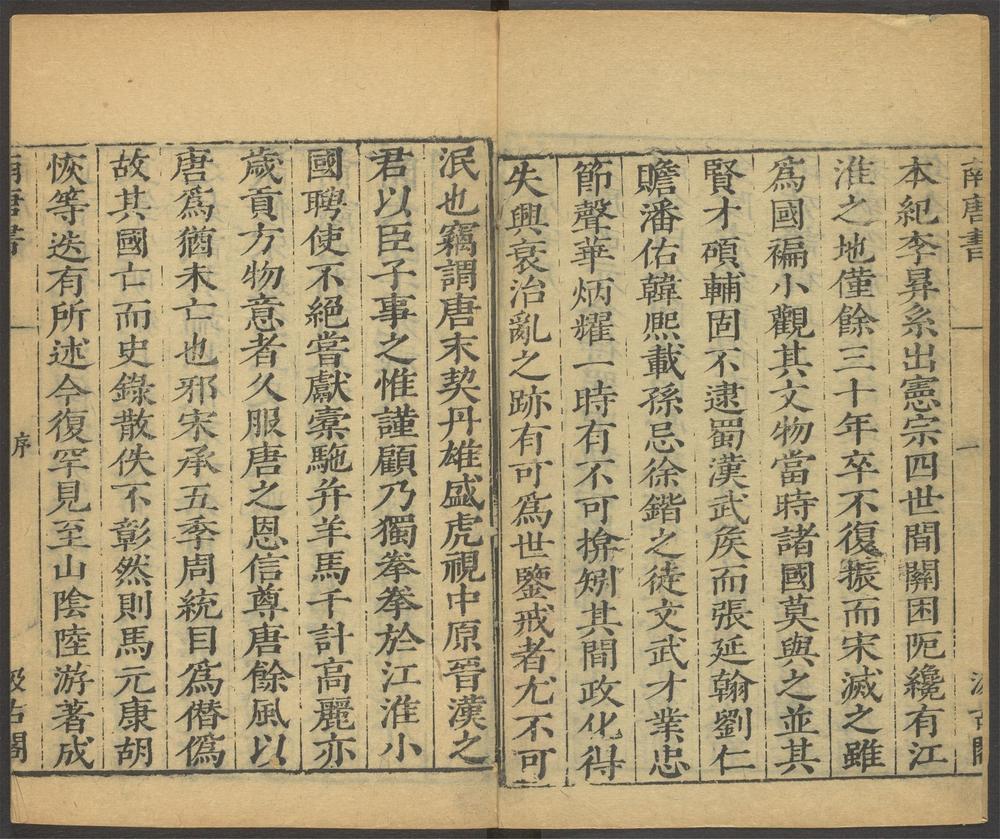 南唐書
一
一
汲古閣
本紀李昪系出憲宗四世間關困阨纔有江
淮之地僅餘三十年卒不復振而宋滅之雖
爲國褊小觀其文物當時諸國莫與之並其
賢才碩輔固不逮蜀漢武矦而張延翰劉仁
贍潘佑韓熈載孫忌徐鍇之徒文武才業忠
節聲華炳耀一時有不可揜矧其間政化得
失興衰治亂之跡有可爲世鑒戒者尤不可
泯也竊謂唐末契丹雄盛虎視中原晉漢之
君以臣子事之惟謹顧乃獨拳拳於江淮小
國聘使不絕嘗獻橐駞并羊馬千計高麗亦
歲貢方物意者久服唐之恩信尊唐餘風以
唐爲猶未亡也邪宋承五季周統目爲僭僞
故其國亡而史錄散佚不彰然則馬元康胡
恢等迭有所述今復罕見至山陰陸游著成
南唐書
序
汲古閣